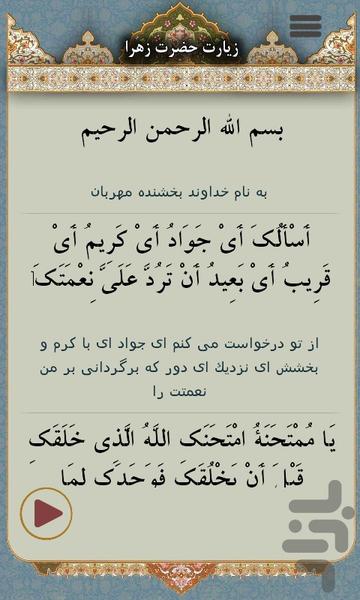 زیارت حضرت زهرا
بسم الله الرحمن الرحیم
به نام خداوند بخشنده مهربان
أسْأَلُکَ أیْ جَوَادُ أیْ کَرِیمُ أیْ
قَرِیبُ أیْ بَعِیدُ أنْ تَرُدَّ عَلَیَّ نِعْمَتَکَ
از تو درخواست می کنم ای جواد ای با کرم و
بخشش ای نزدیك ای دور که برگردانی بر من
نعمتت را
یَا مُمْتَحَنَةُ امْتَحَنَکِ اللَّهُ الَّذِی خَلَقَکِ
قَبْلَ أنْ یَخْلُقَکِ فَوَجَدَکِ لِمَا
بازار